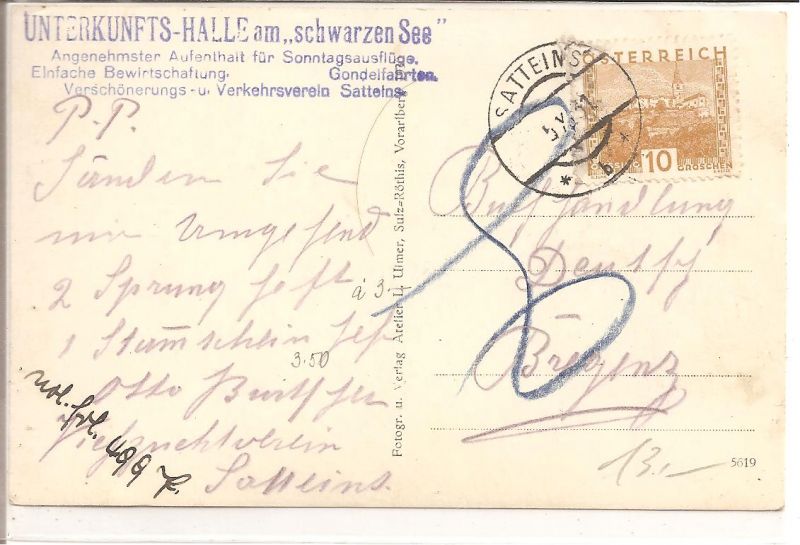 UNTERKUNFTS-HALLE am „schwarzen See"
Angenehmster Aufenthalt für Sonntagsausflüge.
Einfache Bewirtschaftung. Gondelfahrten.
Verschönerungs- u. Verkehrsverein Satteins
P.P.
Sänden Sie
mir Umgehend
2 Sprung Heft
à 3.-
1 Stammschein Heft
3.50
Otto
Viehzuchtverein
Satteins.
Fotogr. u. Verlag Atelier L. Ulmer, Sulz-Röthis, Vorarlberg
SATTEINS
b
ÖSTERREICH
10
GROSCHEN
Buchhandlung
Deutsch
Bregenz
13.-
5619